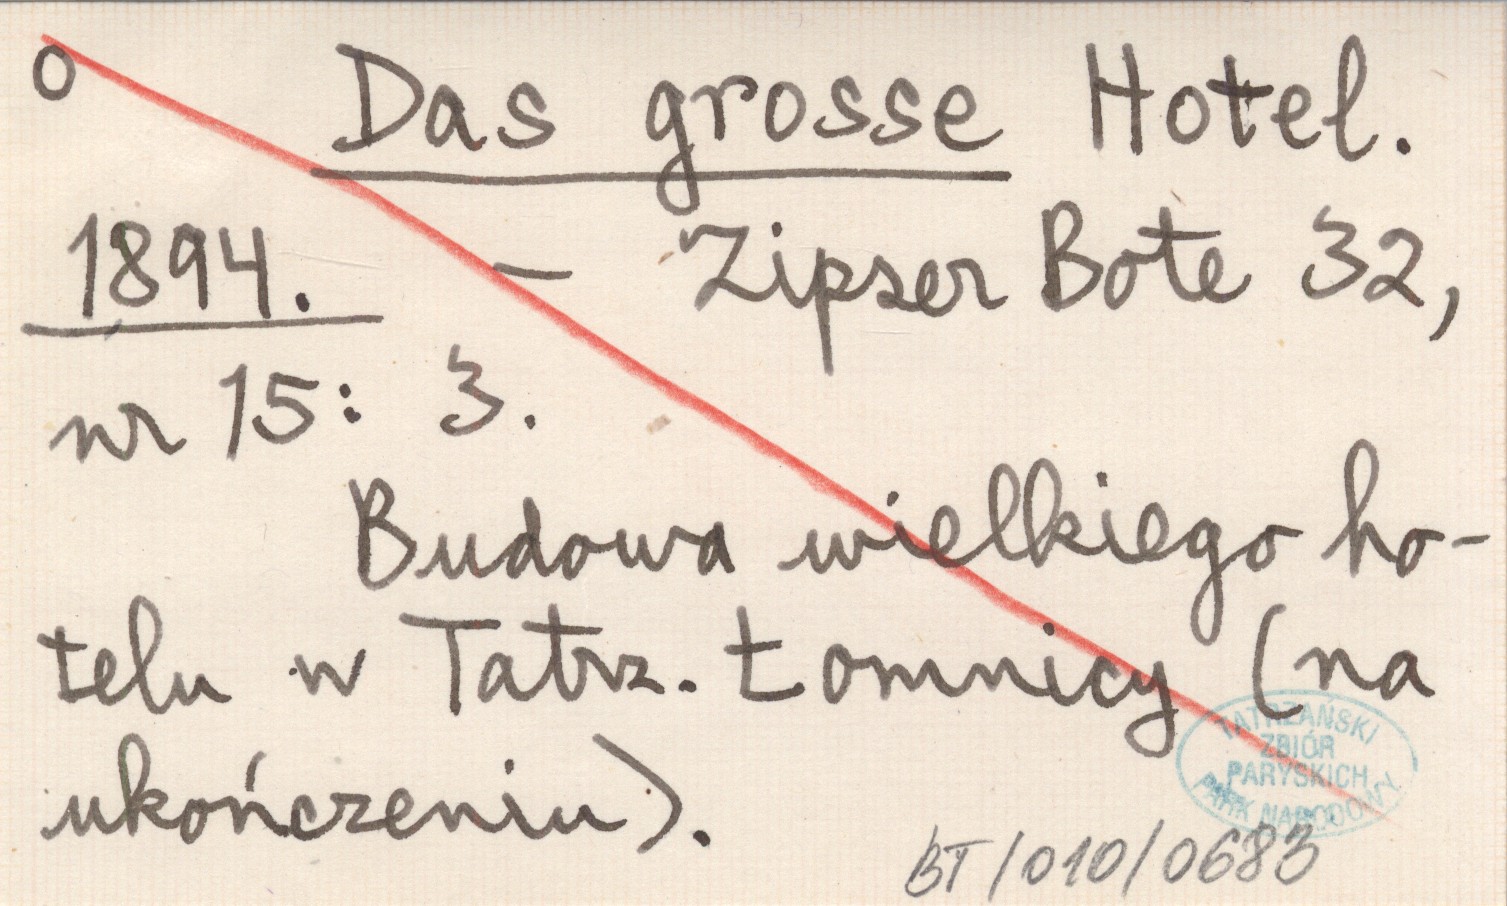 o Das grosse Hotel.
1894. – Zipser Bote 32,
nr 15: 3.
Budowa wielkiego ho-
telu w Tatrz. Łomnicy (na
ukończeniu).
TATRZAŃSKI
ZBIÓR
PARYSKICH
PARK NARODOWY
BT/010/0683